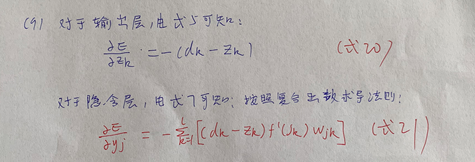 (9) 对于输出层,由式5可知:
∂E/∂zk = -(dk - zk) (式20)
对于隐含层,由式7可知:按照复合函数求导法则:
∂E/∂yj = -∑_{k=1}^{l}[(dk-zk)f'(Uk)wjk] (式21)